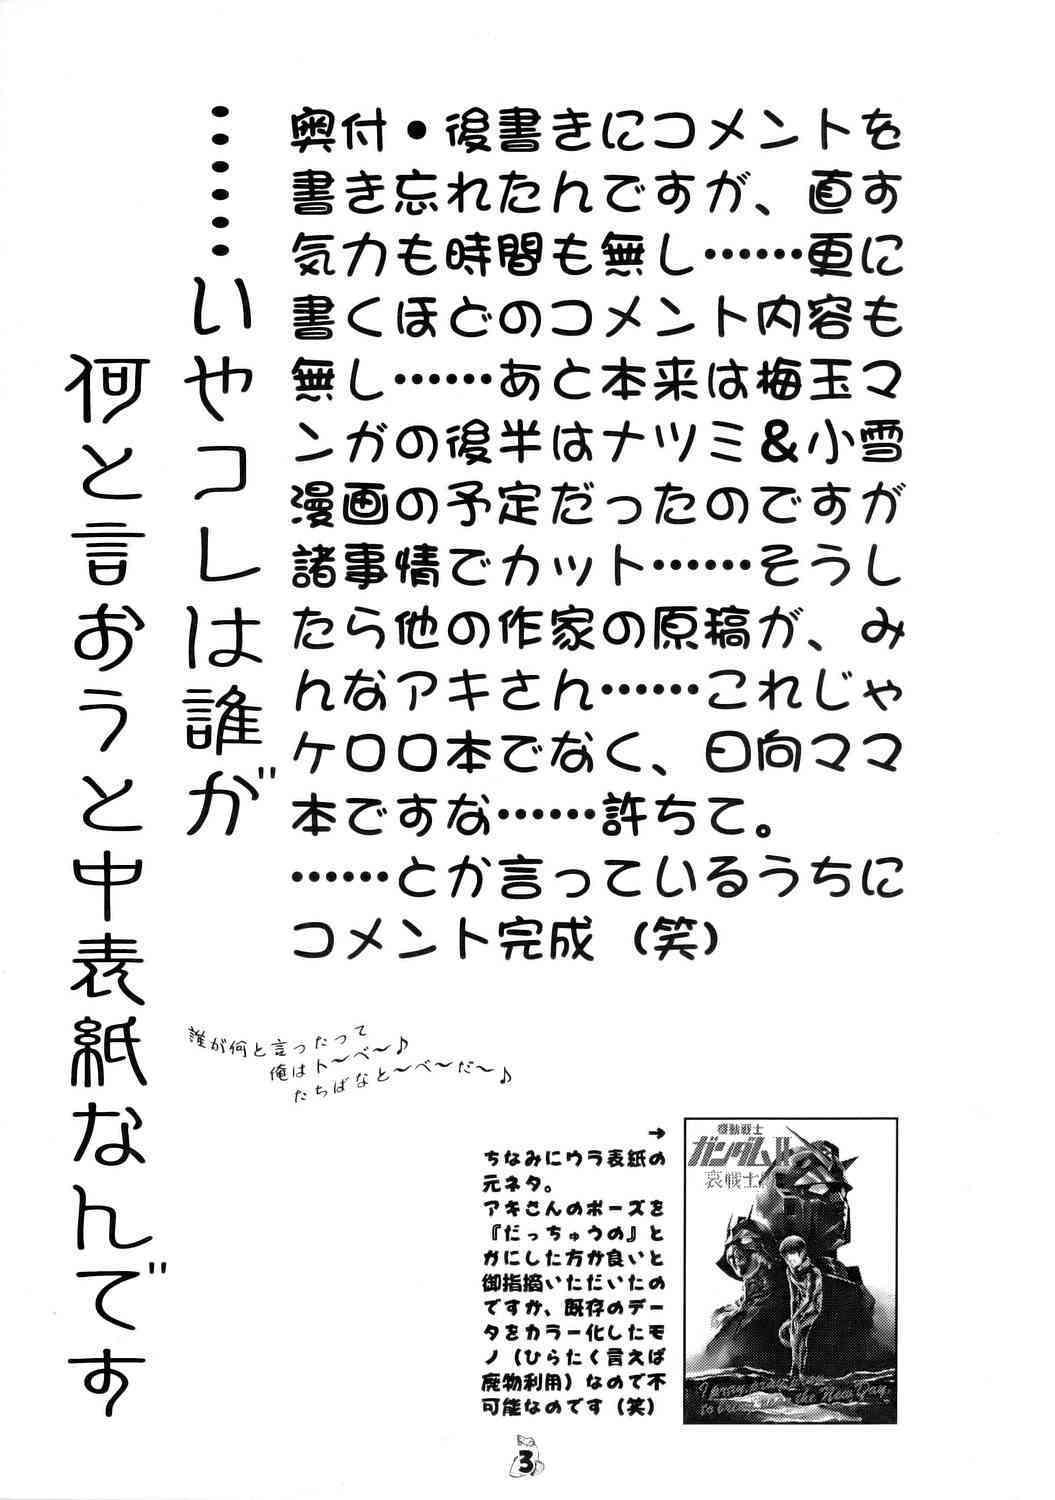 奥付・後書きにコメントを
書き忘れたんですが、直す
気力も時間も無し……更に
書くほどのコメント内容も
無し……あと本来は梅玉マ
ンガの後半はナツミ＆小雪
漫画の予定だったのですが
諸事情でカット……そうし
たら他の作家の原稿が、み
んなアキさん……これじゃ
ケロロ本でなく、日向ママ
本ですな……許ちて。
……とか言っているうちに
コメント完成（笑）
……いやコレは誰が
何と言おうと中表紙なんです
誰が何と言ったって
俺はト～べ～♪
たちばなと～べ～だ～♪
→
ちなみにウラ表紙の
元ネタ。
アキさんのポーズを
『だっちゅうの』と
かにした方が良いと
御指摘いただいたの
ですが、既存のデー
タをカラー化したモ
ノ（ひらたく言えば
廃物利用）なので不
可能なのです（笑）
機動戦士
ガンダムII
哀戦士
3